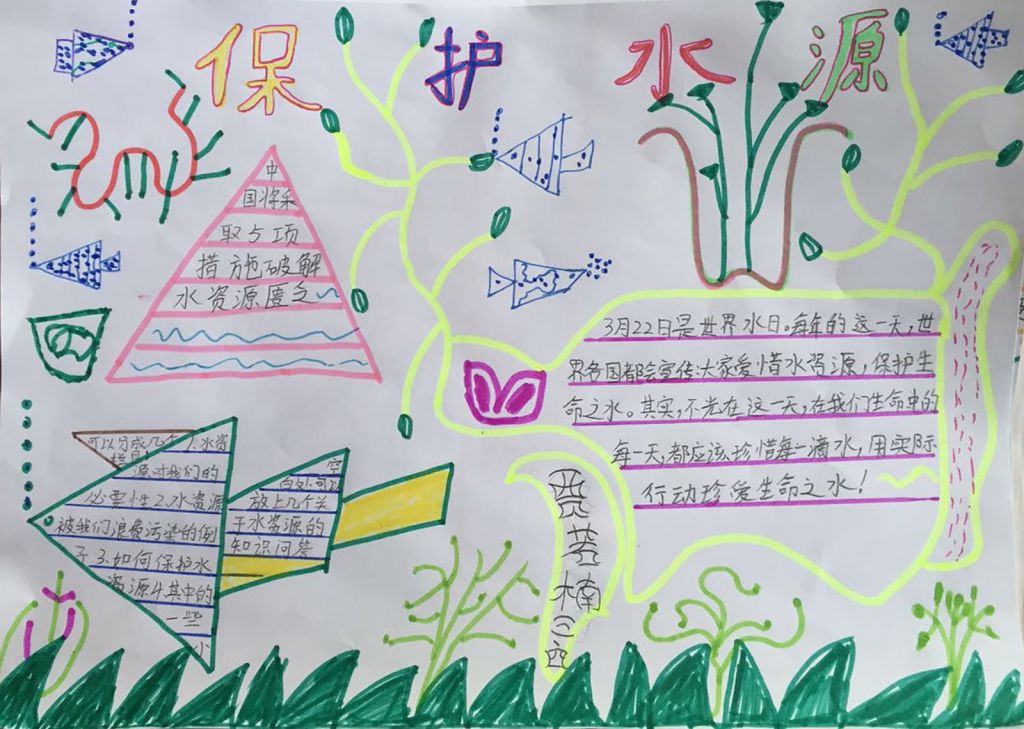 保护水源
中
国将采
取与项
措施破解
水资源匮乏
3月22日是世界水日。每年的这一天,世
界各国都会宣传大家爱惜水资源,保护生
命之水。其实,不光在这一天,在我们生命中的
每一天,都应该珍惜每一滴水,用实际
行动珍爱生命之水!
可以分成几个1.水资
源对我们的
必要性2.水资源
被我们浪费污染的例
子3.如何保护水
资源4.其中的
一些
小
空
白处可以
放上几个关
于水资源的
知识问答
贾若楠三、四